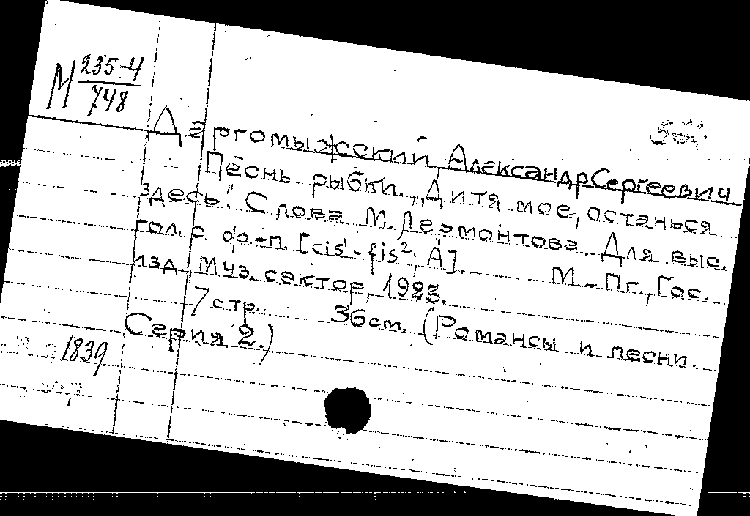 М 235-4
748
Даргомыжский Александр Сергеевич
Песнь рыбки. „Дитя мое, останься
здесь". Слова М. Лермонтова. Для выс.
гол. с ф-п. [cis¹-fis², A]. М.-Пг., Гос.
изд. Муз. сектор, 1923.
7 стр. 36см. (Романсы и песни.
Серия 2.)
1839